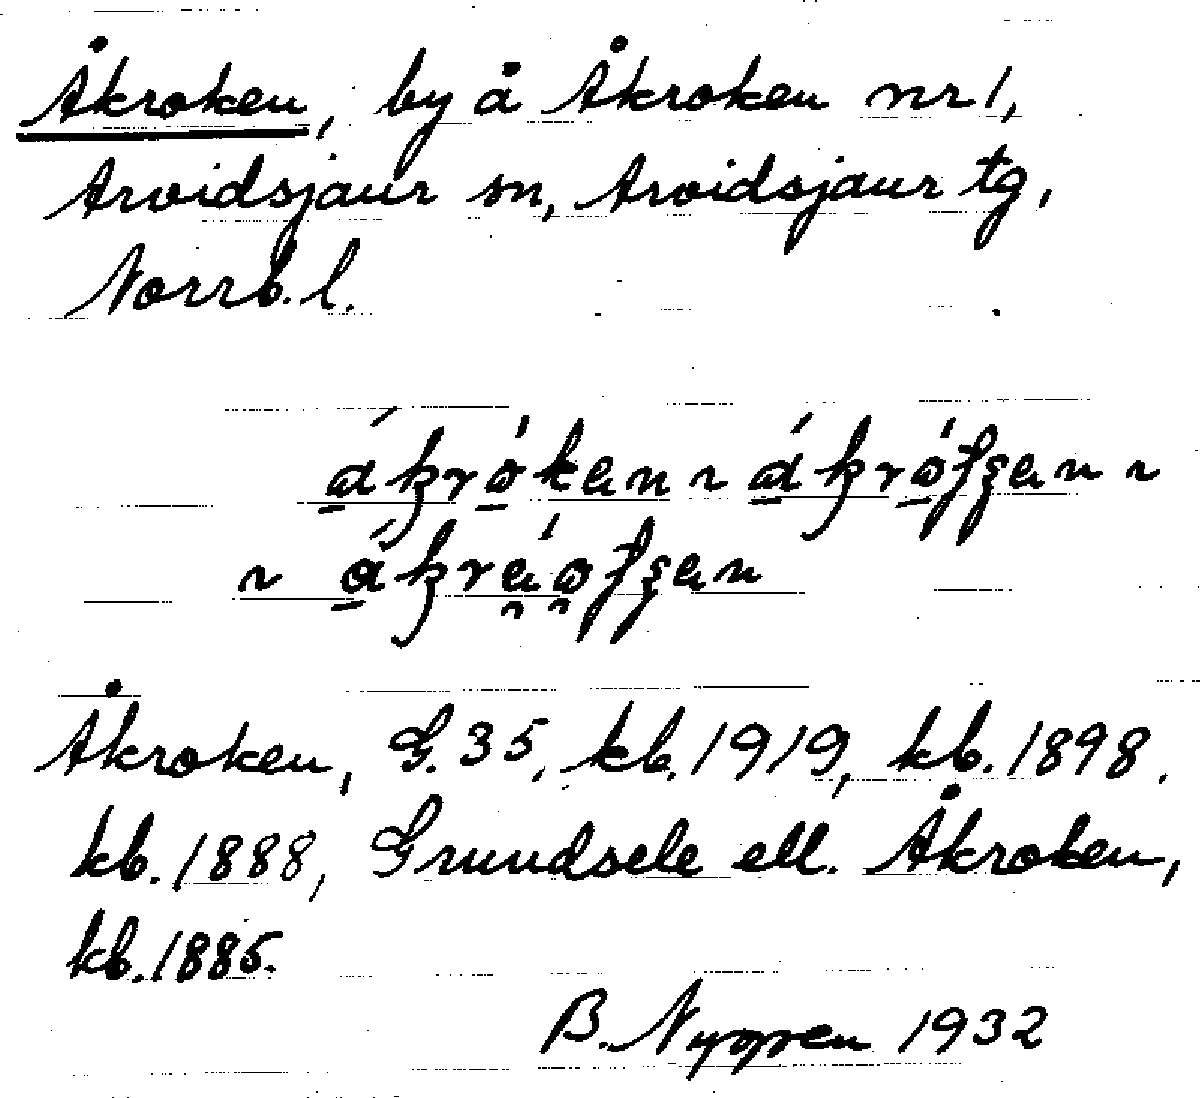 Åkroken, by å Åkroken nr 1,
Arvidsjaur sn, Arvidsjaur tg,
Norrb. l.
Åkroken, G. 35, kb. 1919, kb. 1898,
kb. 1888, Grundsele ell. Åkroken,
kb. 1885.
B. Nygren 1932